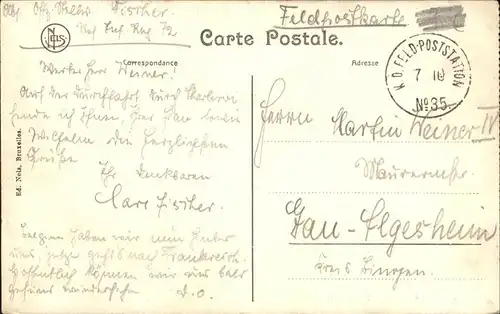 Abs. Offz. Stellv. Fischer.
Res. Inf. Reg. 72
Feldpostkarte
NELS
Carte Postale.
Correspondance
Adresse
K.D. FELD-POSTSTATION
7 10
No 35.
Werter Herr Weiner!
Auf der Durchfahrt durch
sende ich Ihnen, Frau
Wilhelm die herzlichsten
Grüße
Ihr dankbarer
Carl Fischer.
Belgien haben wir nun hinter
uns, jetzt gehts nach Frankreich.
Hoffentlich können wir uns bald
gesund wiedersehen D.O.
Herrn Martin Weiner IV
Maurermstr.
Gau-Algesheim
Kreis Bingen
Ed. Nels, Bruxelles.